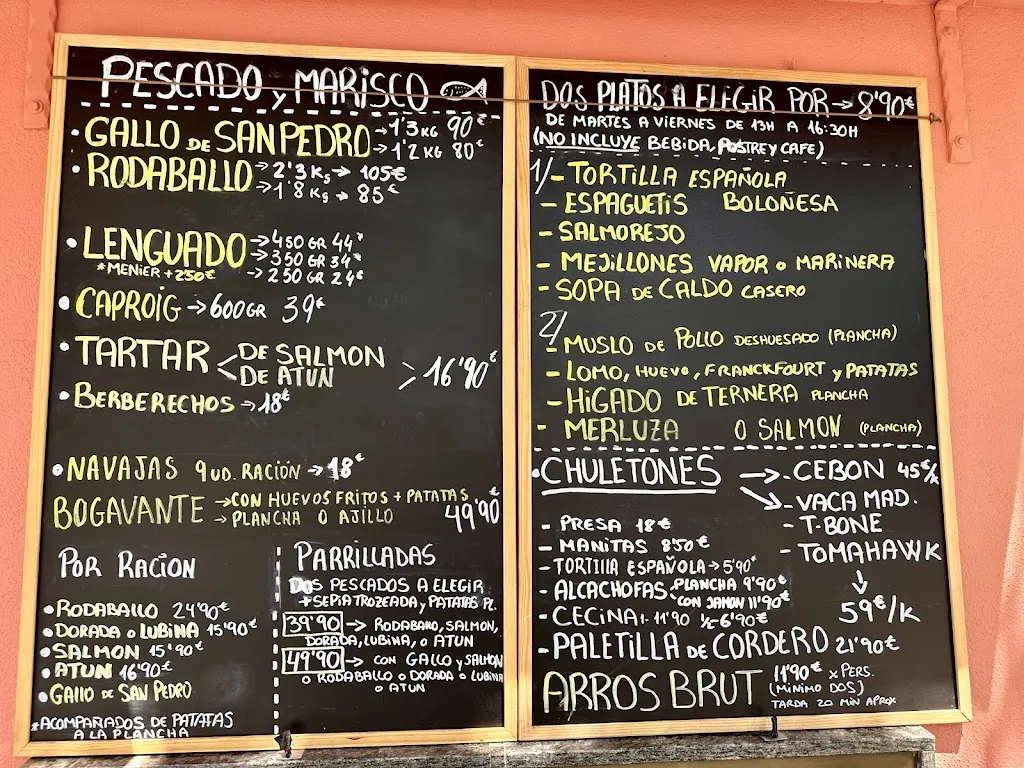 PESCADO y MARISCO
• GALLO DE SAN PEDRO → 1'3 KG 90€
→ 1'2 KG 80€
• RODABALLO → 2'3 Kg → 105€
→ 1'8 Kg → 85€
• LENGUADO → 450 GR 44€
→ 350 GR 34€
→ 250 GR 24€
*MENIER + 2'50€
• CAPROIG → 600 GR 39€
• TARTAR < DE SALMON
DE ATUN > 16'90€
• BERBERECHOS → 18€
• NAVAJAS 9 UD. RACIÓN → 18€
BOGAVANTE → CON HUEVOS FRITOS + PATATAS
→ PLANCHA O AJILLO 49'90€
POR RACION
• RODABALLO 24'90€
• DORADA O LUBINA 15'90€
• SALMON 15'90€
• ATUN 16'90€
• GALLO DE SAN PEDRO
*ACOMPAÑADOS DE PATATAS
A LA PLANCHA
PARRILLADAS
DOS PESCADOS A ELEGIR
+ SEPIA TROZEADA, y PATATAS PL.
39'90 → RODABALLO, SALMON,
DORADA, LUBINA, O ATUN
49'90 → CON GALLO y SALMON
O RODABALLO O DORADA O LUBINA
O ATUN
DOS PLATOS A ELEGIR POR → 8'90€
DE MARTES A VIERNES DE 13H A 16:30H
(NO INCLUYE BEBIDA, POSTRE Y CAFE)
1/ - TORTILLA ESPAÑOLA
- ESPAGUETIS BOLOÑESA
- SALMOREJO
- MEJILLONES VAPOR O MARINERA
- SOPA DE CALDO CASERO
2/
- MUSLO DE POLLO DESHUESADO (PLANCHA)
- LOMO, HUEVO, FRANCKFOURT y PATATAS
- HIGADO DE TERNERA PLANCHA
- MERLUZA O SALMON (PLANCHA)
• CHULETONES → - CEBON 45€/K
→ - VACA MAD.
- T-BONE
- TOMAHAWK
↓
59€/K
- PRESA 18€
- MANITAS 8'50€
- TORTILLA ESPAÑOLA → 5'90€
- ALCACHOFAS PLANCHA 9'90€
CON JAMON 11'90€
- CECINA 1- 11'90 ½-6'90€
- PALETILLA DE CORDERO 21'90€
ARROS BRUT 11'90€ x PERS.
(MINIMO DOS)
TARDA 20 MIN APROX